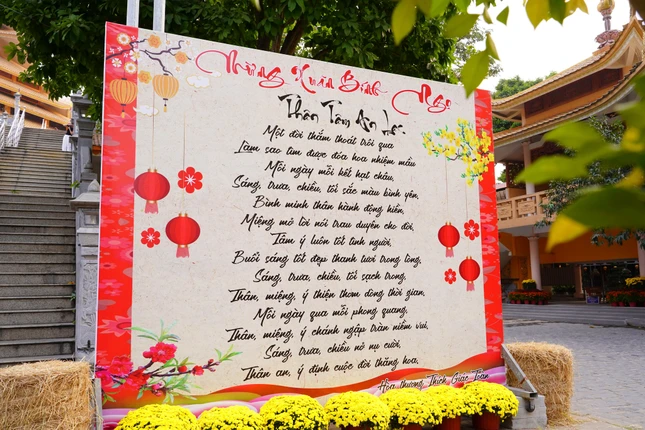 Mừng Xuân Bính Ngọ
Thân Tâm An Lạc
Một đời thắm thoát trôi qua
Làm sao tìm được đóa hoa nhiệm mầu
Mỗi ngày mỗi kết hạt châu,
Sáng, trưa, chiều, tối sắc màu bình yên,
Bình minh thân hành động hiền,
Miệng mở lời nói trau duyên cho đời,
Tâm ý luôn tốt tình người,
Buổi sáng tốt đẹp thanh tươi trong lòng,
Sáng, trưa, chiều, tối sạch trong,
Thân, miệng, ý thiện thơm dòng thời gian,
Mỗi ngày qua mỗi phong quang,
Thân, miệng, ý chánh ngập tràn niềm vui,
Sáng, trưa, chiều nở nụ cười,
Thân an, ý định cuộc đời thăng hoa,
Hòa thượng Thích Giác Toàn